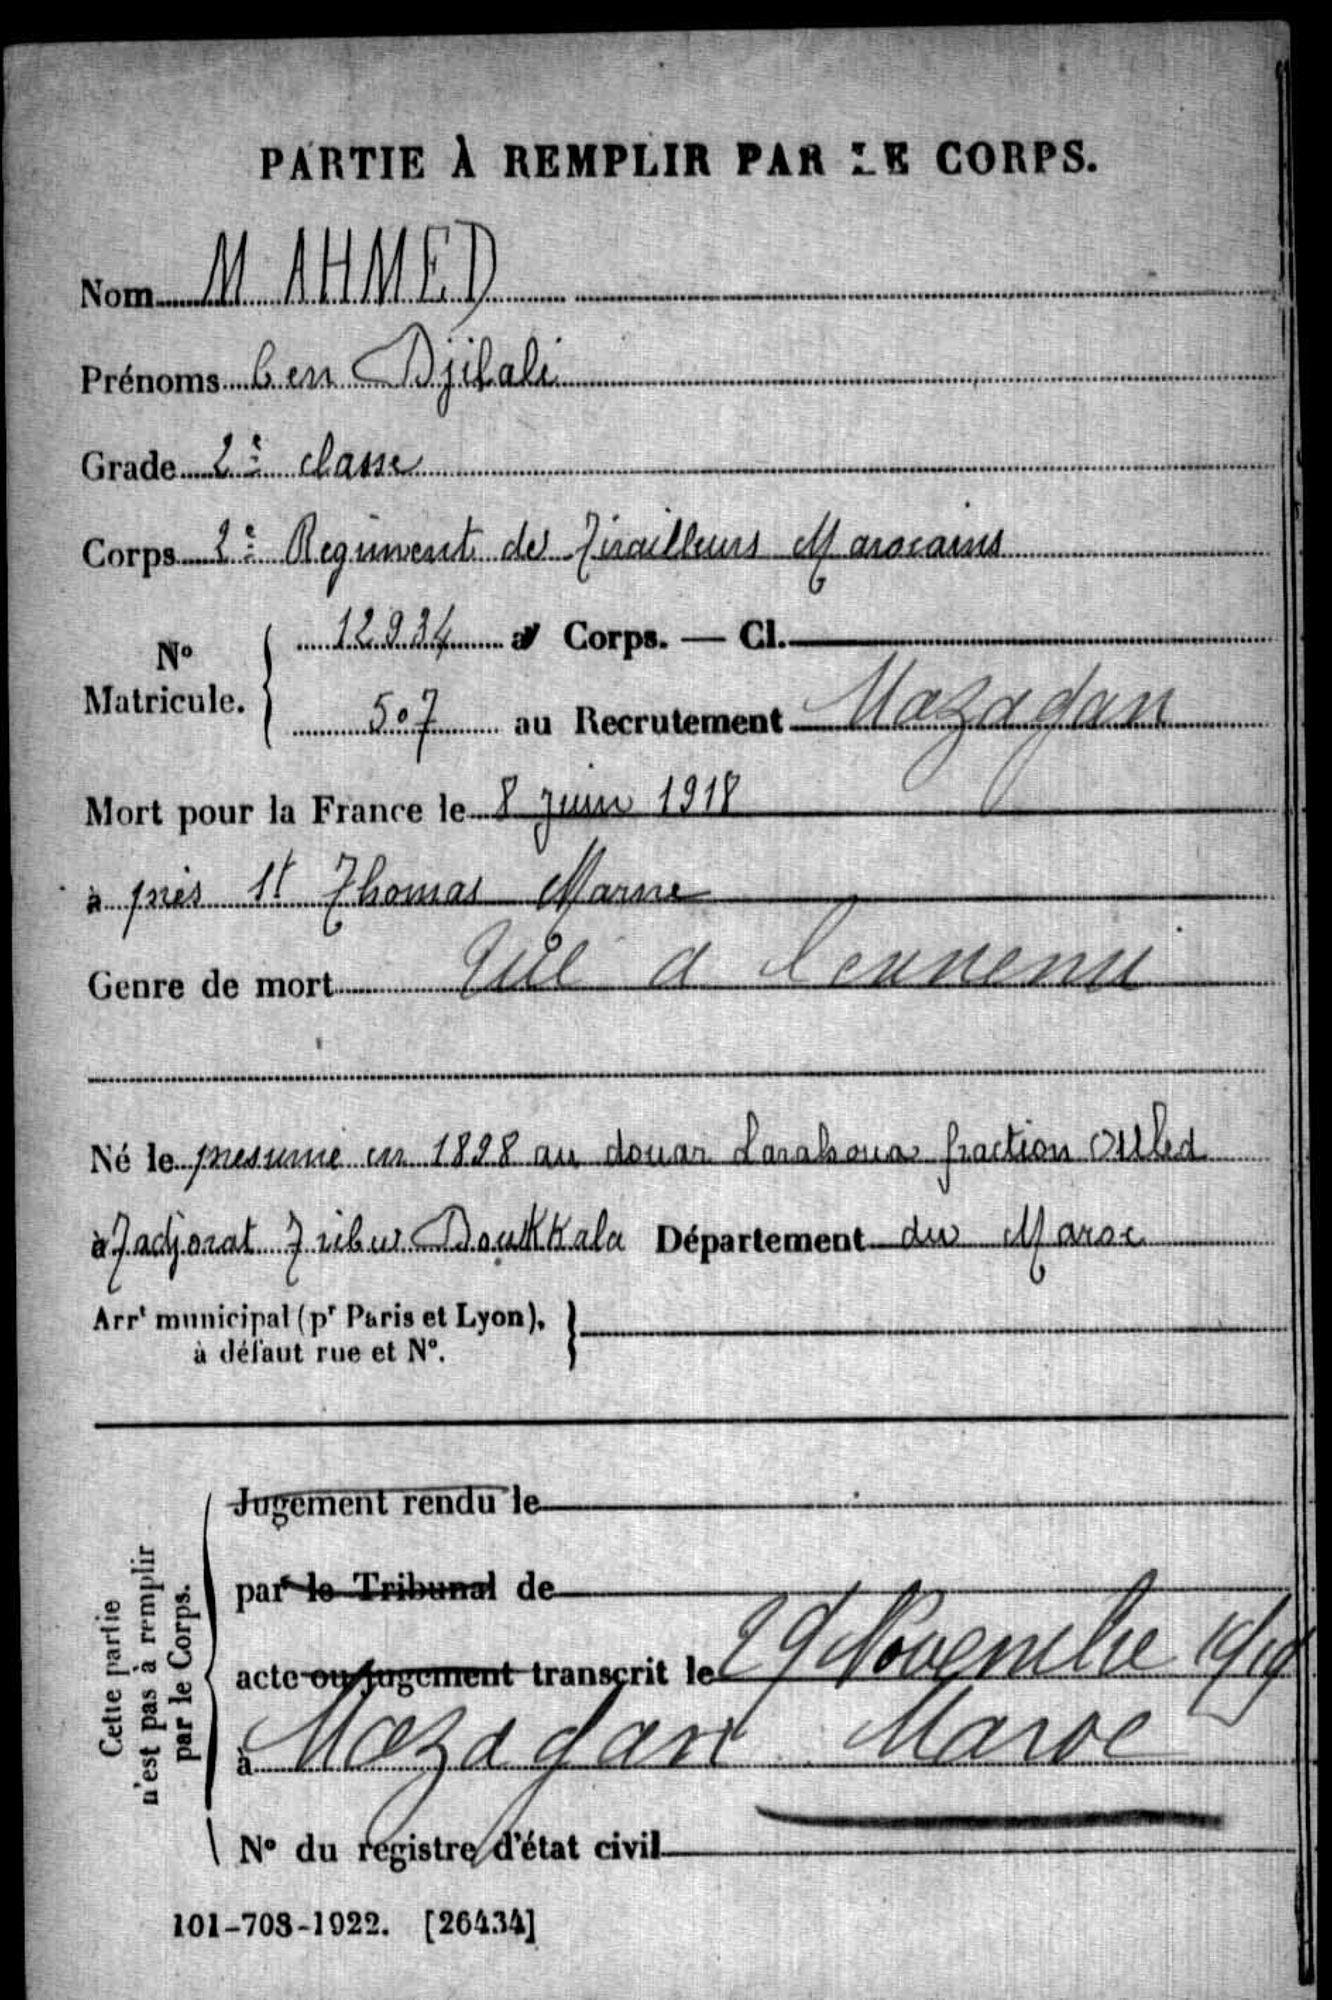 PARTIE À REMPLIR PAR LE CORPS.
Nom M AHMED
Prénoms ben Djilali
Grade 2e classe
Corps 2e Regiment de Tirailleurs Marocains
No Matricule. 12934 au Corps. — Cl.
507 au Recrutement Mazagan
Mort pour la France le 8 juin 1918
à près St Thomas Marne
Genre de mort Tué a l'ennemi
Né le presumé en 1898 au douar fraction Oulled
à Tribu Doukkala Département du Maroc
Arrt municipal (pr Paris et Lyon),
à défaut rue et No.
Cette partie
n'est pas à remplir
par le Corps.
Jugement rendu le
par le Tribunal de
acte ou jugement transcrit le 29 Novembre 1919
à Mazagan Maroc
No du registre d'état civil
101-708-1922. [26434]